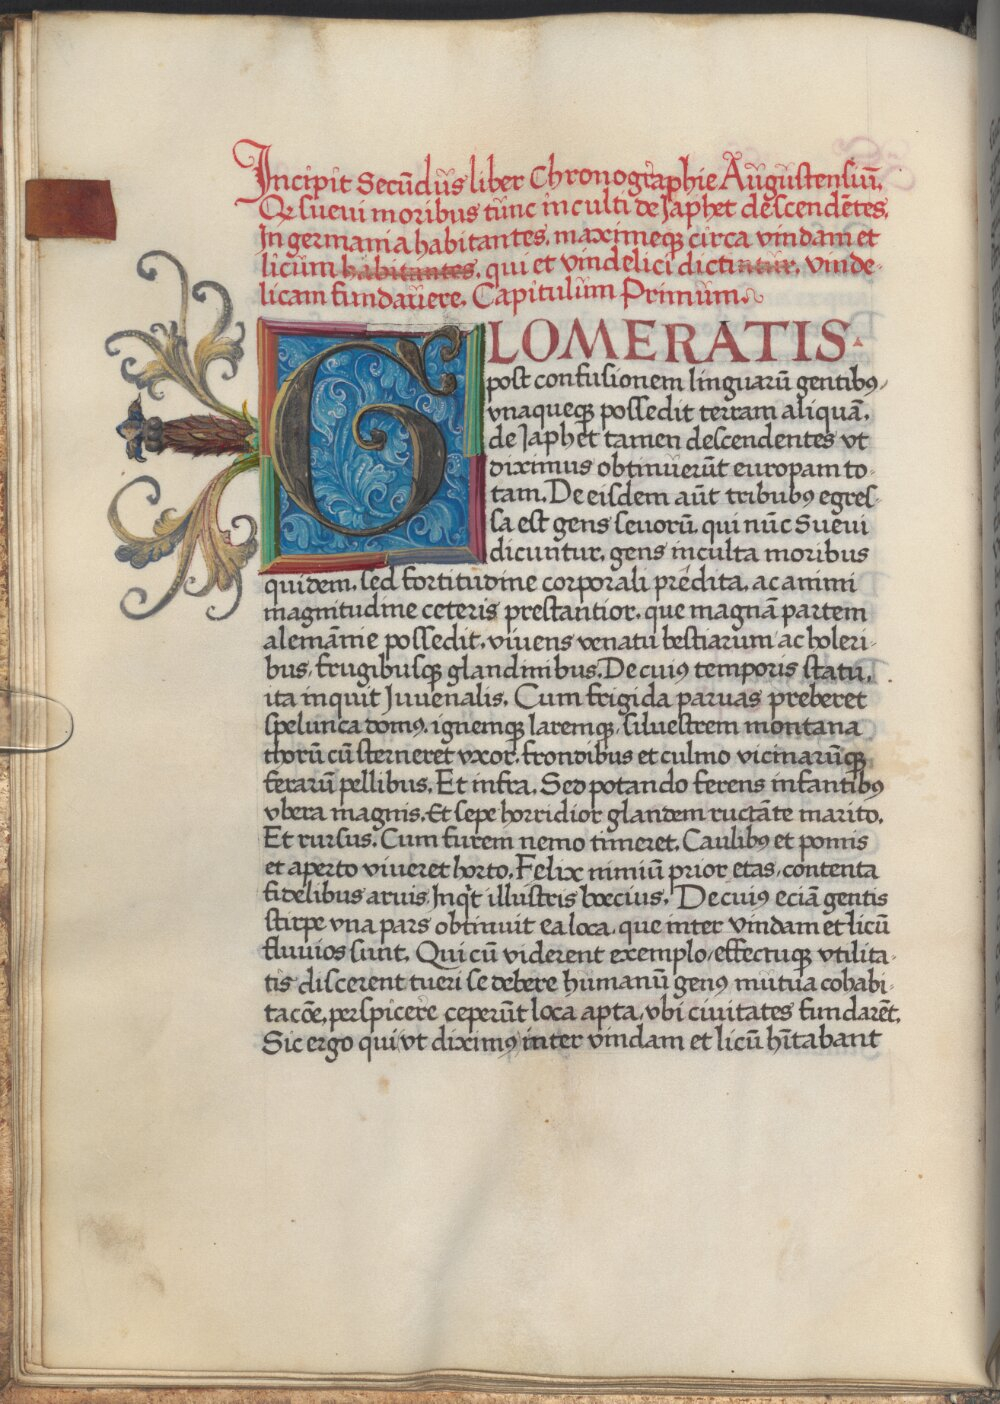 Incipit Secūdus liber Chronographie Augustensiū.
Qr suevi moribus tūnc inculti de Japhet descendētes,
In germania habitantes, maximeqꝫ circa vindam et
licum habitantes, qui et vindelici dictintur, vinde-
licam fundavere. Capitulum Primum.
GLOMERATIS
post confusionem linguarū gentibꝰ,
vnaqueqꝫ possedit terram aliquā,
de Japhet tamen descendentes vt
diximus obtinuerūt europam to-
tam. De eisdem aūt tribubꝰ egres-
sa est gens sevorū, qui nūc Suevi
dicuntur, gens inculta moribus
quidem, sed fortitudine corporali predita, ac animi
magnitudine ceteris prestantior, que magnā partem
alemānie possedit, viuens venatu bestiarum ac holeri-
bus, frugibusqꝫ glandinibus. De cuiꝰ temporis statu,
ita inquit Juvenalis. Cum frigida paruas preberet
spelunca domꝰ, ignemqꝫ laremqꝫ, siluestrem montana
thorū cū sterneret vxor, frondibus et culmo vicinarūqꝫ
ferarū pellibus. Et infra. Sed potando ferens infantibꝰ
vbera magnis. Et sepe horridior glandem ructāte marito.
Et rursus. Cum furem nemo timeret. Caulibꝰ et pomis
et aperto viueret horto. Felix nimiū prior etas, contenta
fidelibus aruis. Inqt illustris boecius. De cuiꝰ eciā gentis
stirpe vna pars obtinuit ea loca, que inter vindam et licū
fluuios sunt. Qui cū viderent exemplo, effectuqꝫ vtilita-
tis discerent tueri se debere humanū genꝰ mutua cohabi-
tacōe, perspicere ceperūt loca apta, vbi ciuitates fundarēt.
Sic ergo qui vt diximꝰ inter vindam et licū hītabant